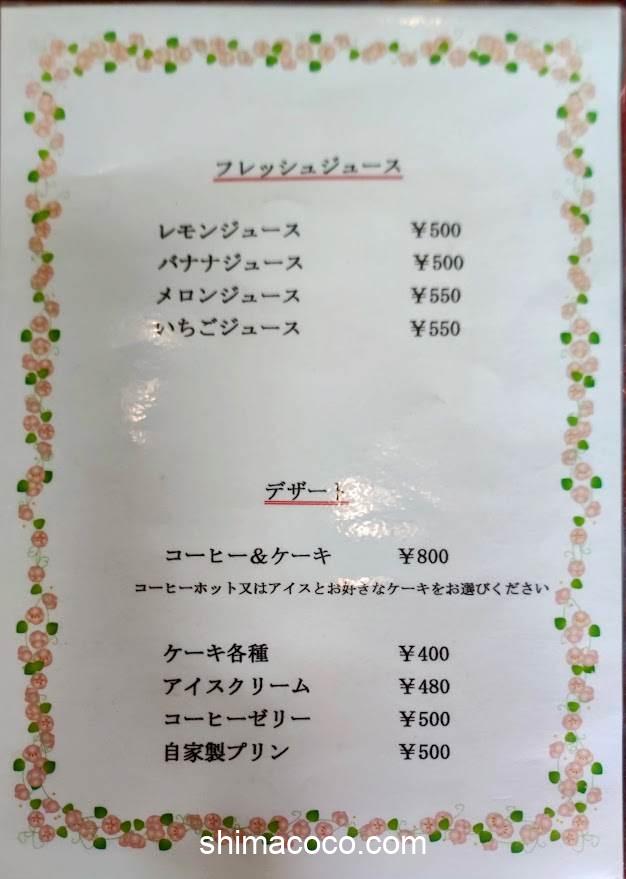 フレッシュジュース
レモンジュース ¥500
バナナジュース ¥500
メロンジュース ¥550
いちごジュース ¥550
デザート
コーヒー＆ケーキ ¥800
コーヒーホット又はアイスとお好きなケーキをお選びください
ケーキ各種 ¥400
アイスクリーム ¥480
コーヒーゼリー ¥500
自家製プリン ¥500
shimacoco.com